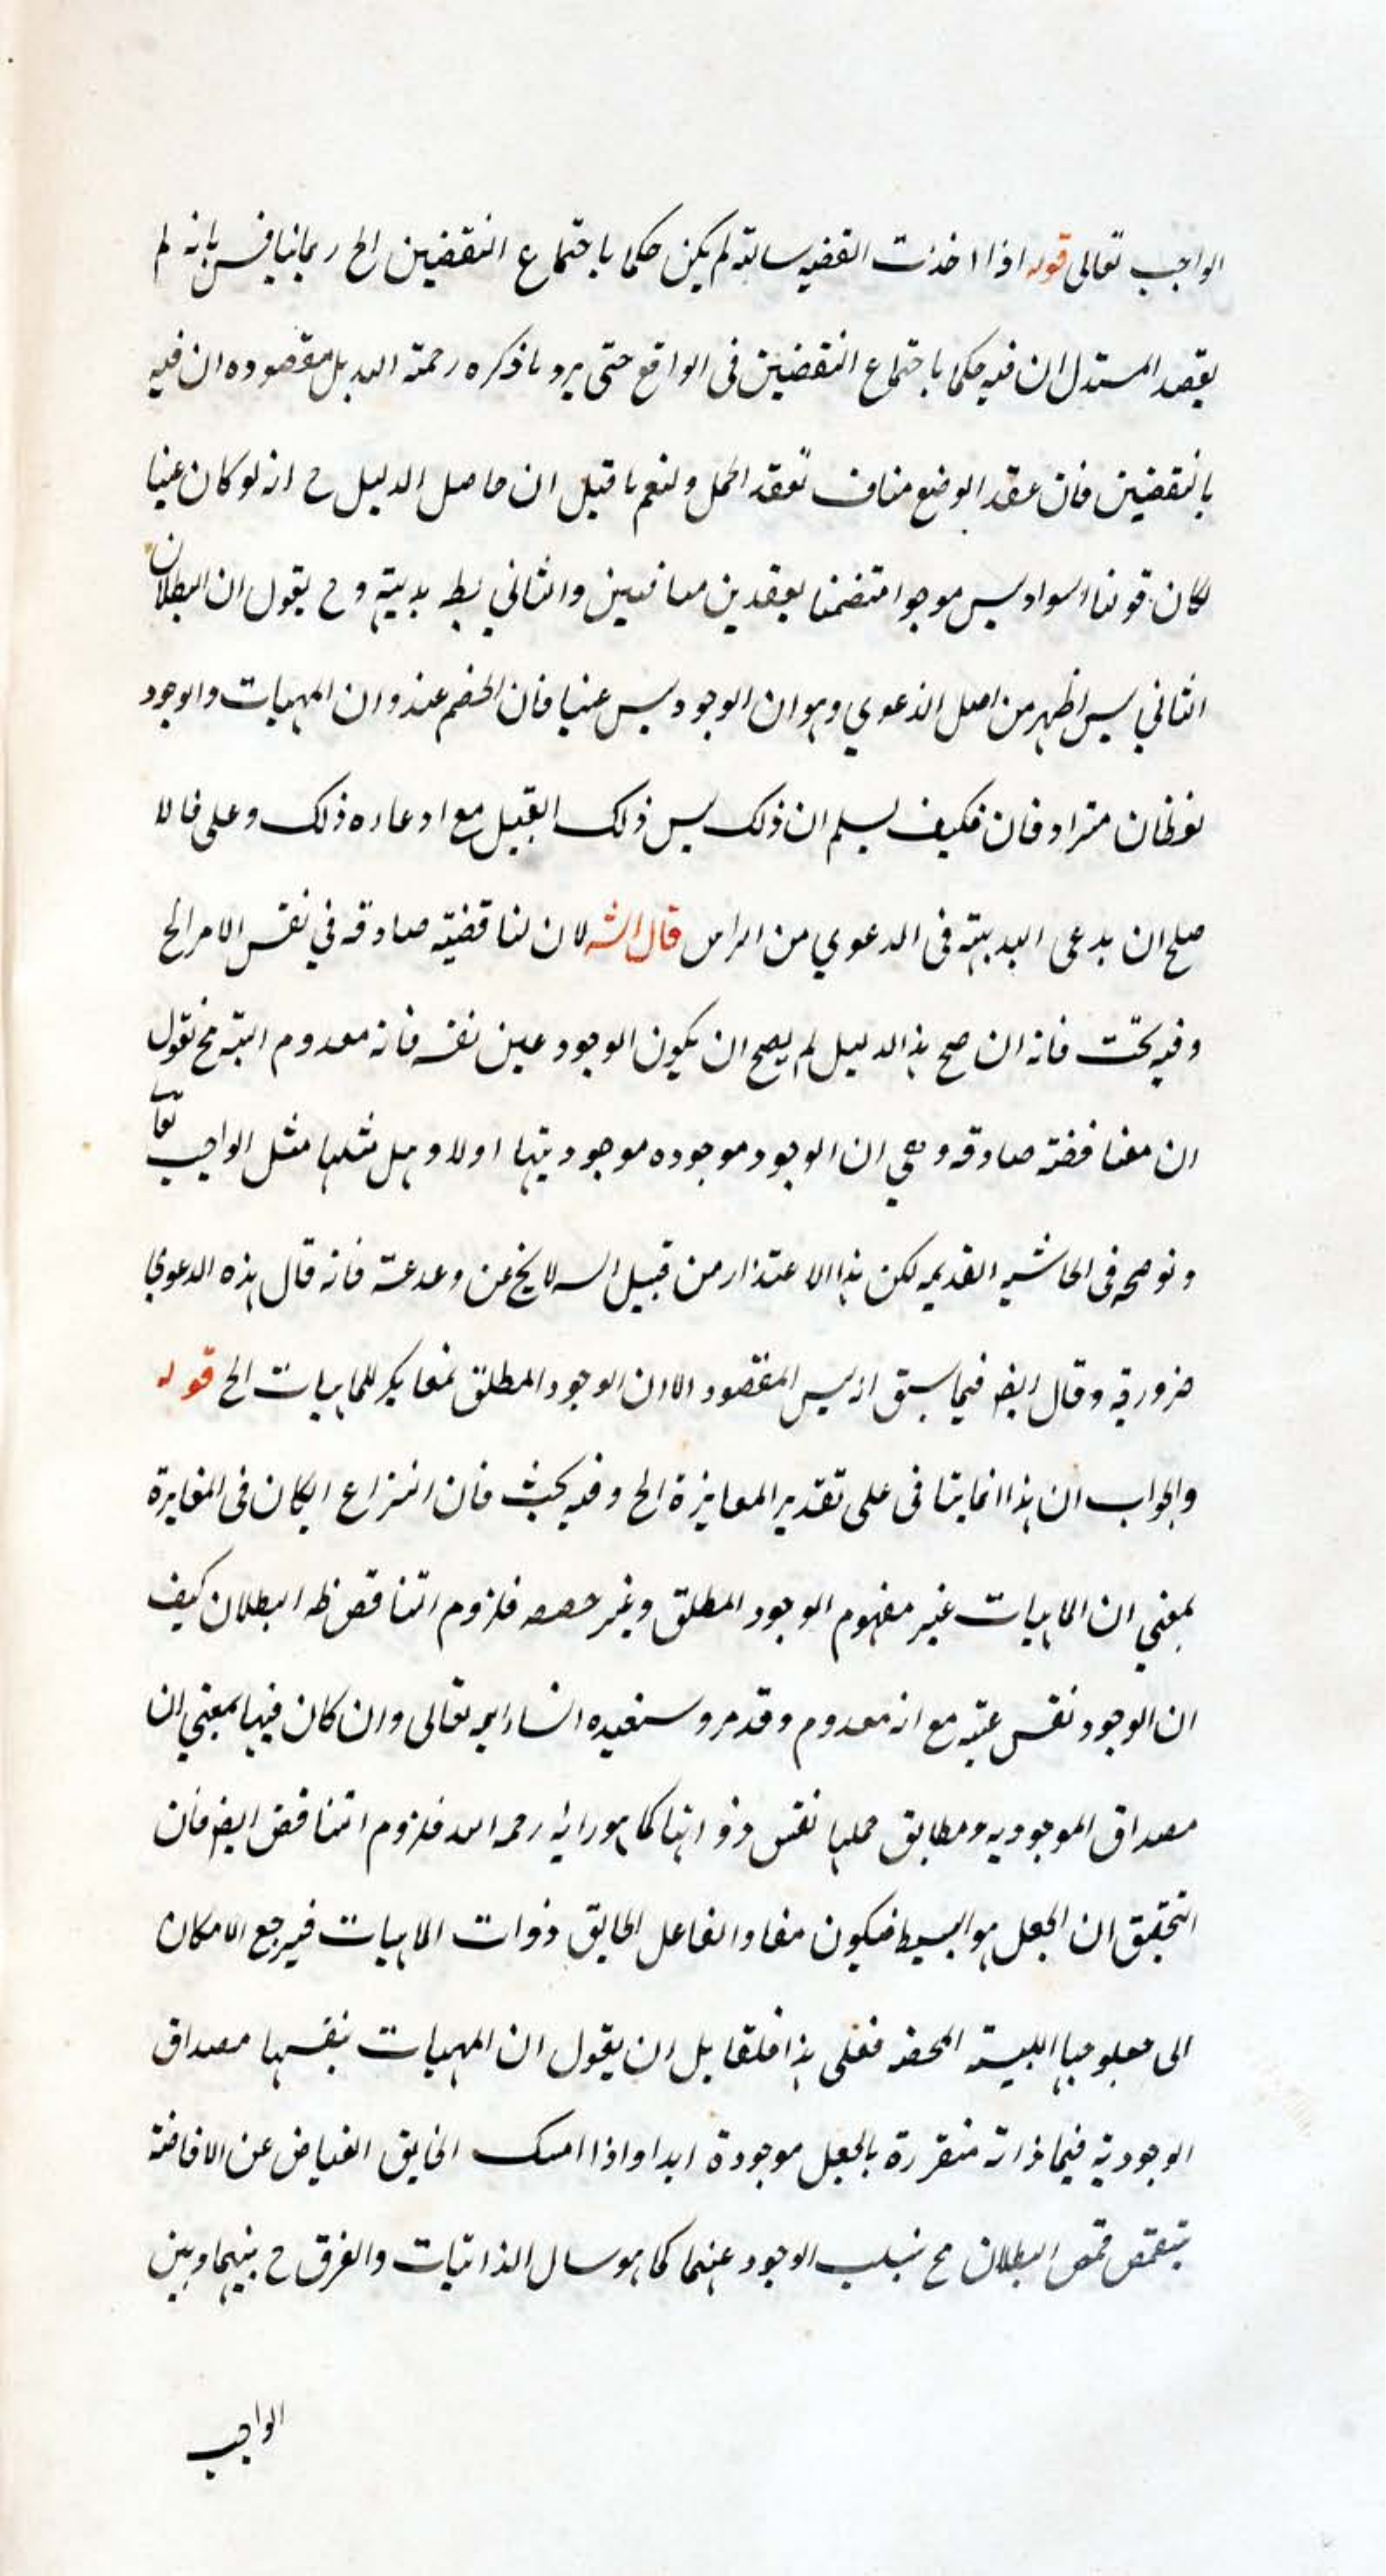 الواجب تعالى قوله اذا اخذت القضيه سالبة لم يكن حكما باجتماع النقيضين الخ ربما نيافس بانه لم
يقصد المستدل ان فيه حكما باجتماع النقيضين فى الواقع حتى يرد ما ذكره رحمة الله بل مقصوده ان فيه
بالنقيضين فان عقد الوضع مناف لعقد الحمل ولنعم ما قيل ان حاصل الدليل ح انه لو كان عينا
لكان قولنا السواد ليس موجوا متضمنا لعقدين منافيين والثاني بط بديهة وح يقول ان البطلان
الثاني ليس اظهر من اصل الدعوي وهو ان الوجود ليس عينا فان الخصم عنده ان المهيات والوجود
لفظان مترادفان فكيف يسلم ان ذلك ليس ذلك القبيل مع ادعاءه ذلك وعلى فالا
صلح ان يدعى البديهة فى الدعوي من الراس قال الشه لان لنا قضية صادقه في نفس الامر الخ
وفيه بحث فانه ان صح هذا الدليل لم يصح ان يكون الوجود عين نفسه فانه معدوم البتة فح نقول
ان معنا قضة صادقه وهي ان الوجود موجوده موجوديتها اولا وبل مثلها مثل الواجب تعا
وتوضحه فى الحاشيه القديمه لكن هذا الاعتذار من قبيل الشه لا يخ عن وعدعة فانه قال هذه الدعوي
ضرورية وقال ايضا فيما سبق انه ليس المقصود الا ان الوجود المطلق مغاير للماهيات الخ قوله
والجواب ان هذا انما يتافى على تقدير المغايرة الخ وفيه بحث فان النزاع ان كان فى المغايرة
بمعني ان الماهيات غير مفهوم الوجود المطلق وغير حصصه فلزوم التناقص ظه البطلان كيف
ان الوجود نفس عينه مع انه معدوم وقد مر وسنعيده انشاء الله تعالى وان كان فيها بمعني ان
مصداق الموجوديه ومطابق حملها نفس ذواتها كما هو رائه رحمه الله فلزوم التناقض ايضا فان
التحقيق ان الجعل هو البسيط فيكون مفاد الفاعل الخالق ذوات الماهيات فيرجع الامكان
الى معلوميها الليسة المحضه فعلى هذا فلقايل ان يقول ان المهيات نفسها مصداق
الوجودية فيما ذاته متقررة بالجعل موجودة ابدا واذا امسك الخالق الفياض عن الافاضة
بتقمص قمص البطلان مح نسلب الوجود عنهما كما هو سال الذاتيات والفرق ح بينهما وبين
الواجب